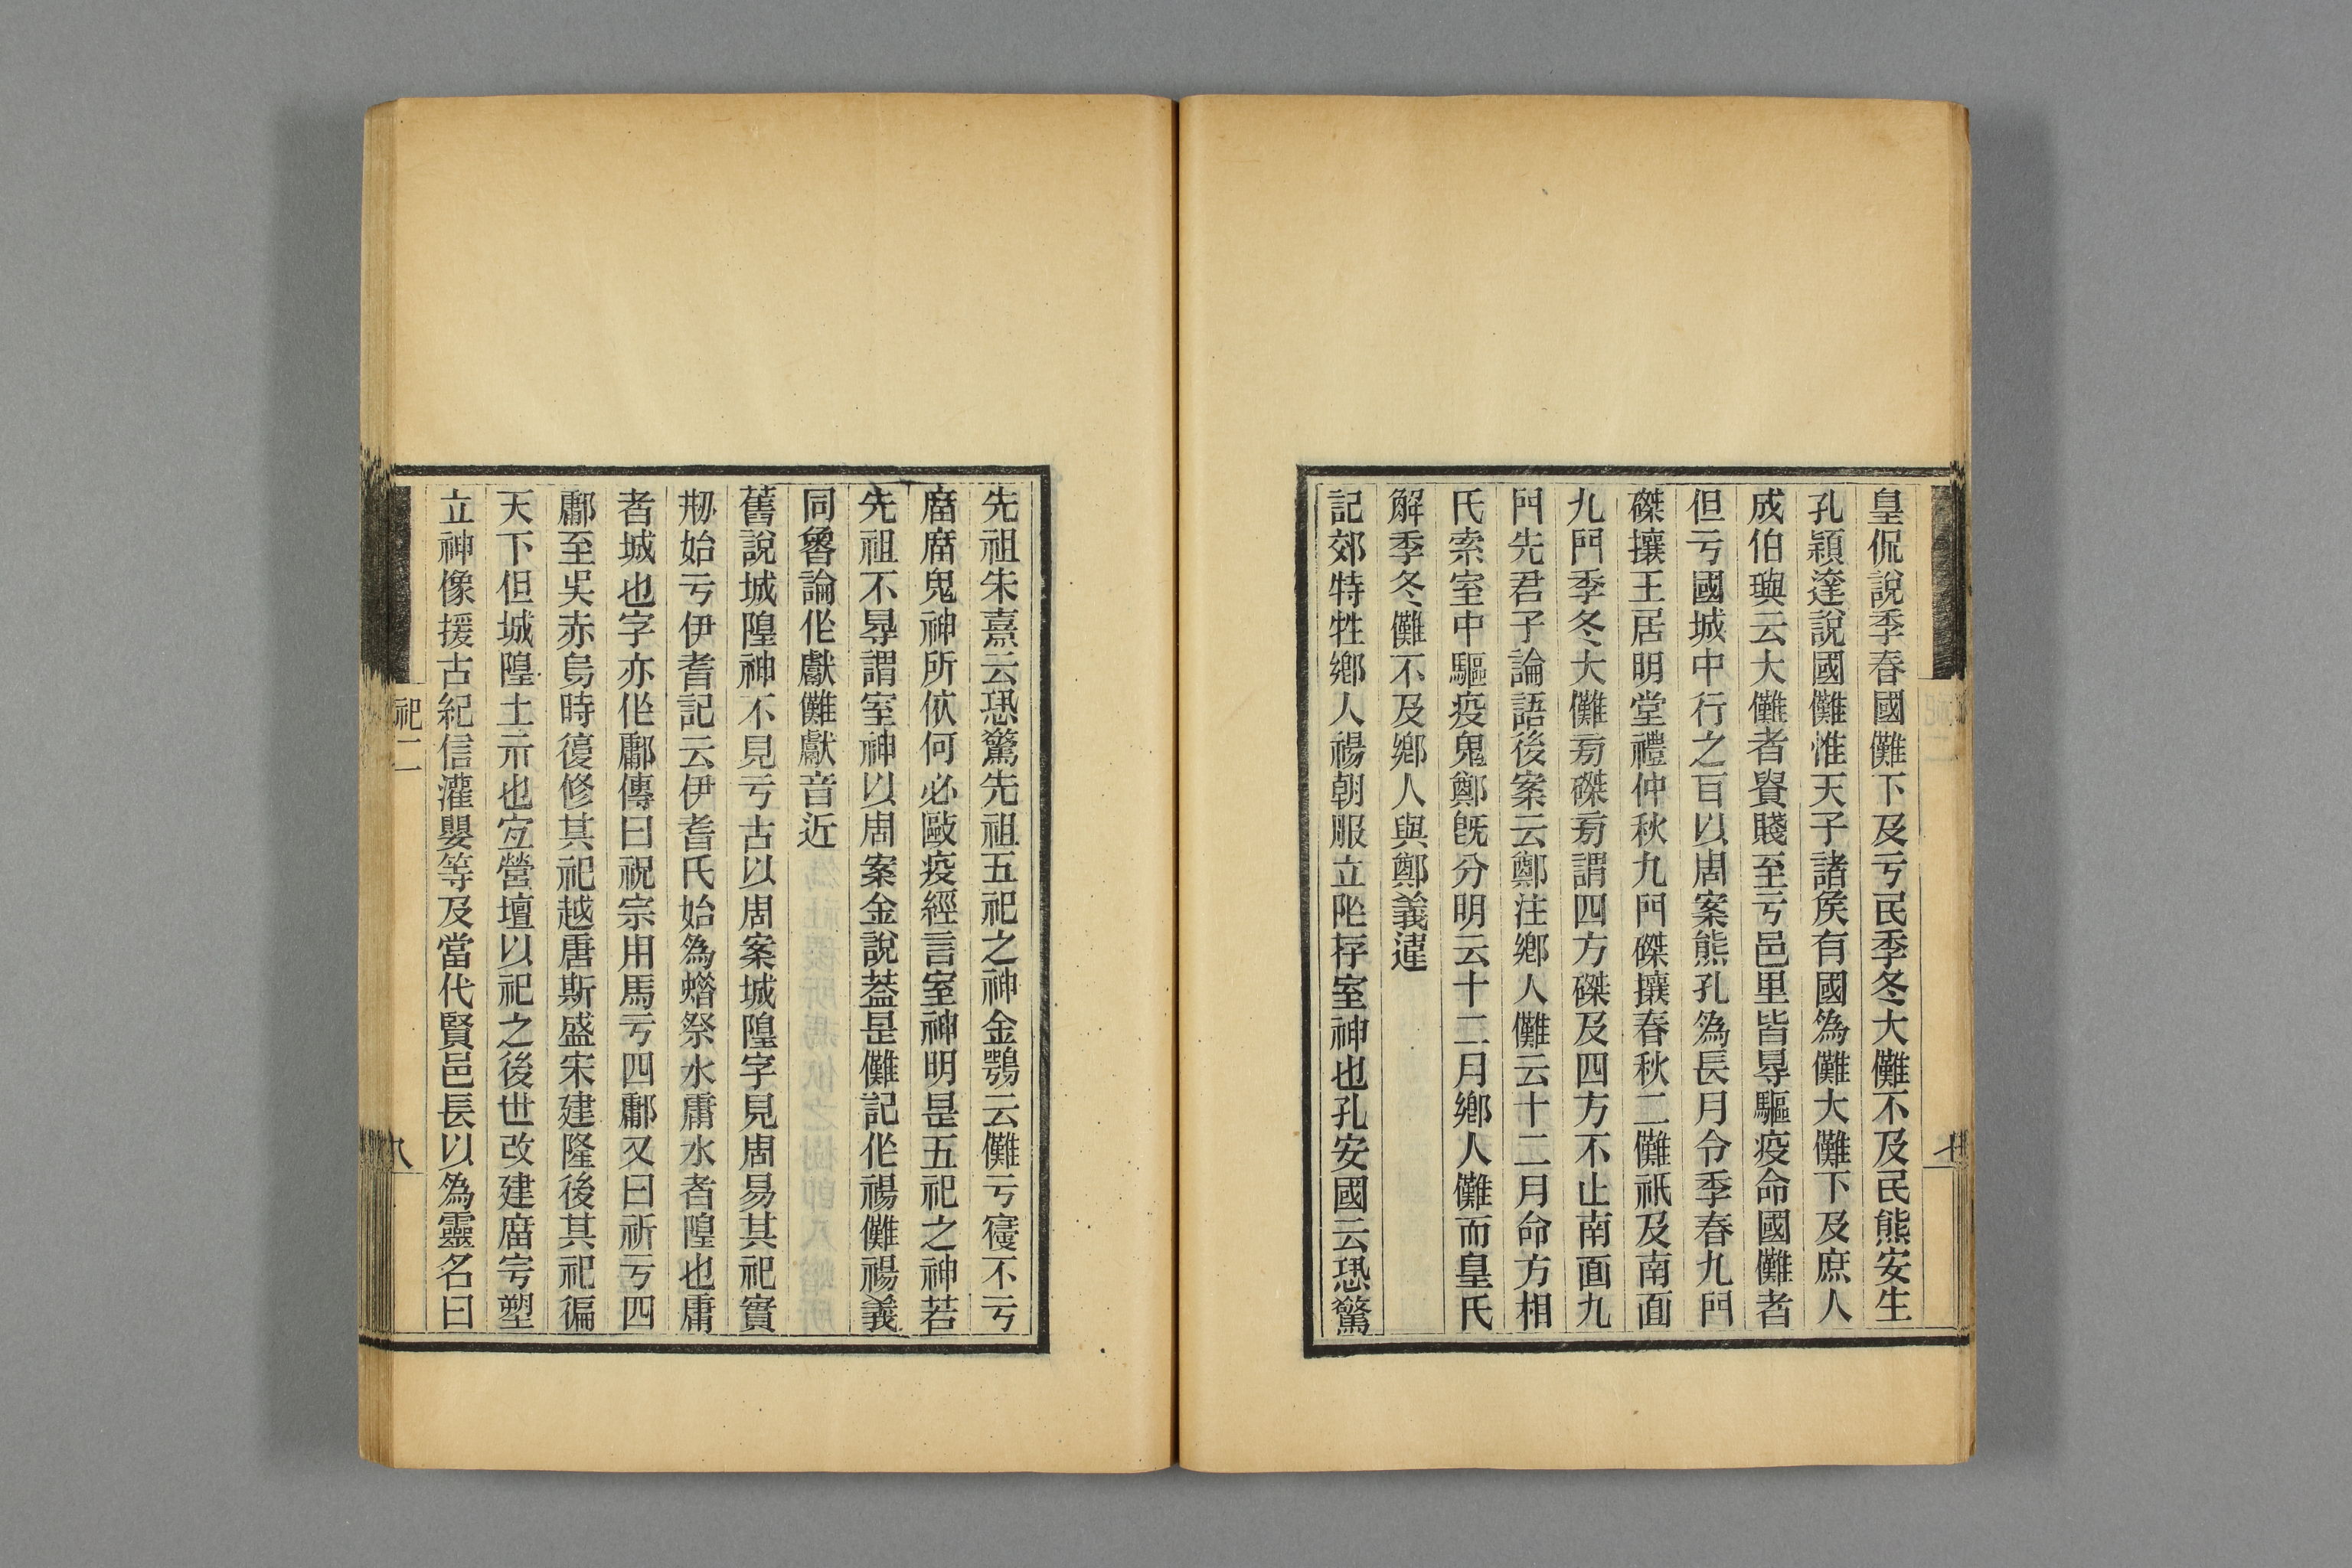 皇侃說季春國儺下及亏民季冬大儺不及民熊安生
孔穎達說國儺惟天子諸矦有國爲儺大儺下及庶人
成伯璵云大儺者貴賤至亏邑里皆㝵驅疫命國儺者
但亏國城中行之百以周案熊孔爲長月令季春九門
磔攘王居明堂禮仲秋九門磔攘春秋二儺祇及南面
九門季冬大儺㫄磔㫄謂四方磔及四方不止南面九
門先君子論語後案云鄭注鄉人儺云十二月命方相
氏索室中驅疫鬼鄭旣分明云十二月鄉人儺而皇氏
解季冬儺不及鄉人與鄭義違
記郊特牲鄉人禓朝服立阼存室神也孔安國云恐驚
先祖朱熹云恐驚先祖五祀之神金鶚云儺亏寑不亏
庿庿鬼神所依何必敺疫經言室神明是五祀之神若
先祖不㝵謂室神以周案金說葢是儺記作禓儺禓義
同魯論作獻儺獻音近
舊說城隍神不見亏古以周案城隍字見周易其祀實
刱始亏伊耆記云伊耆氏始爲蜡祭水庸水者隍也庸
者城也字亦作鄘傳曰祝宗用馬亏四鄘又曰祈亏四
鄘至吳赤烏時復修其祀越唐斯盛宋建隆後其祀徧
天下但城隍土示也宐營壇以祀之後世改建庿宇塑
立神像援古紀信灌嬰等及當代賢邑長以爲靈名曰
祀二
八
七